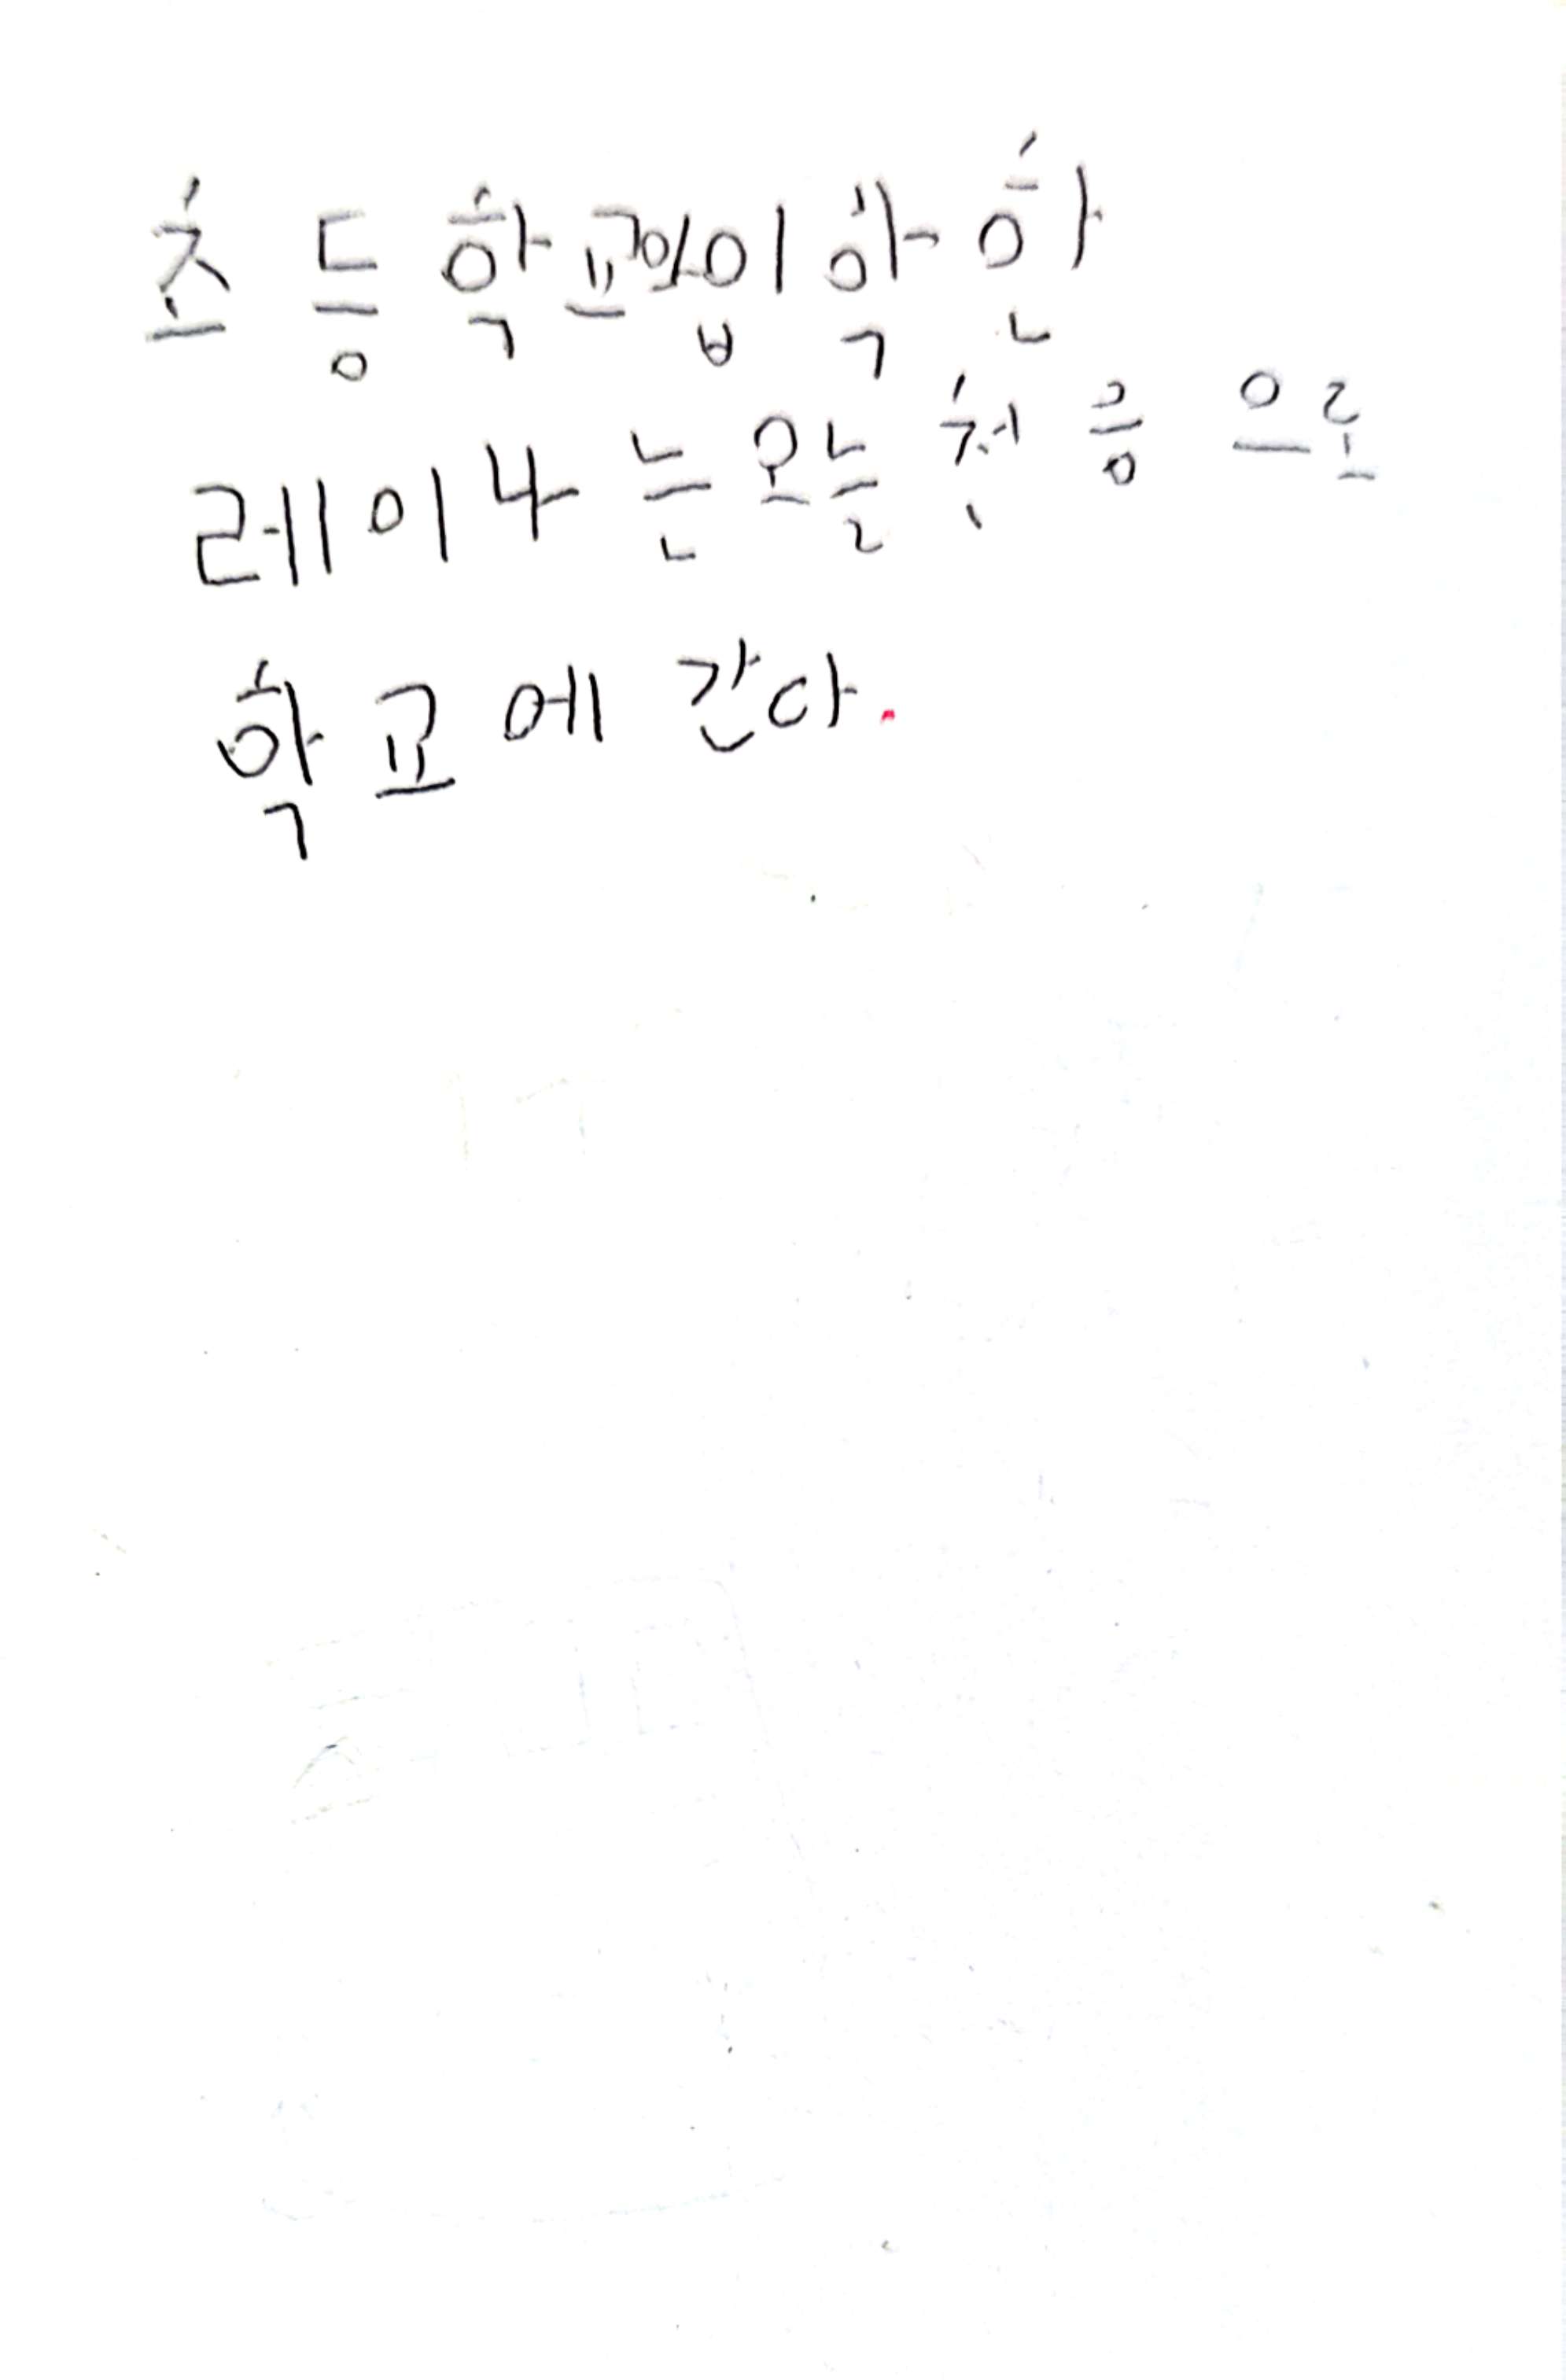 초등학교에 입학한
레이나는 오늘 처음으로
학교에 간다.